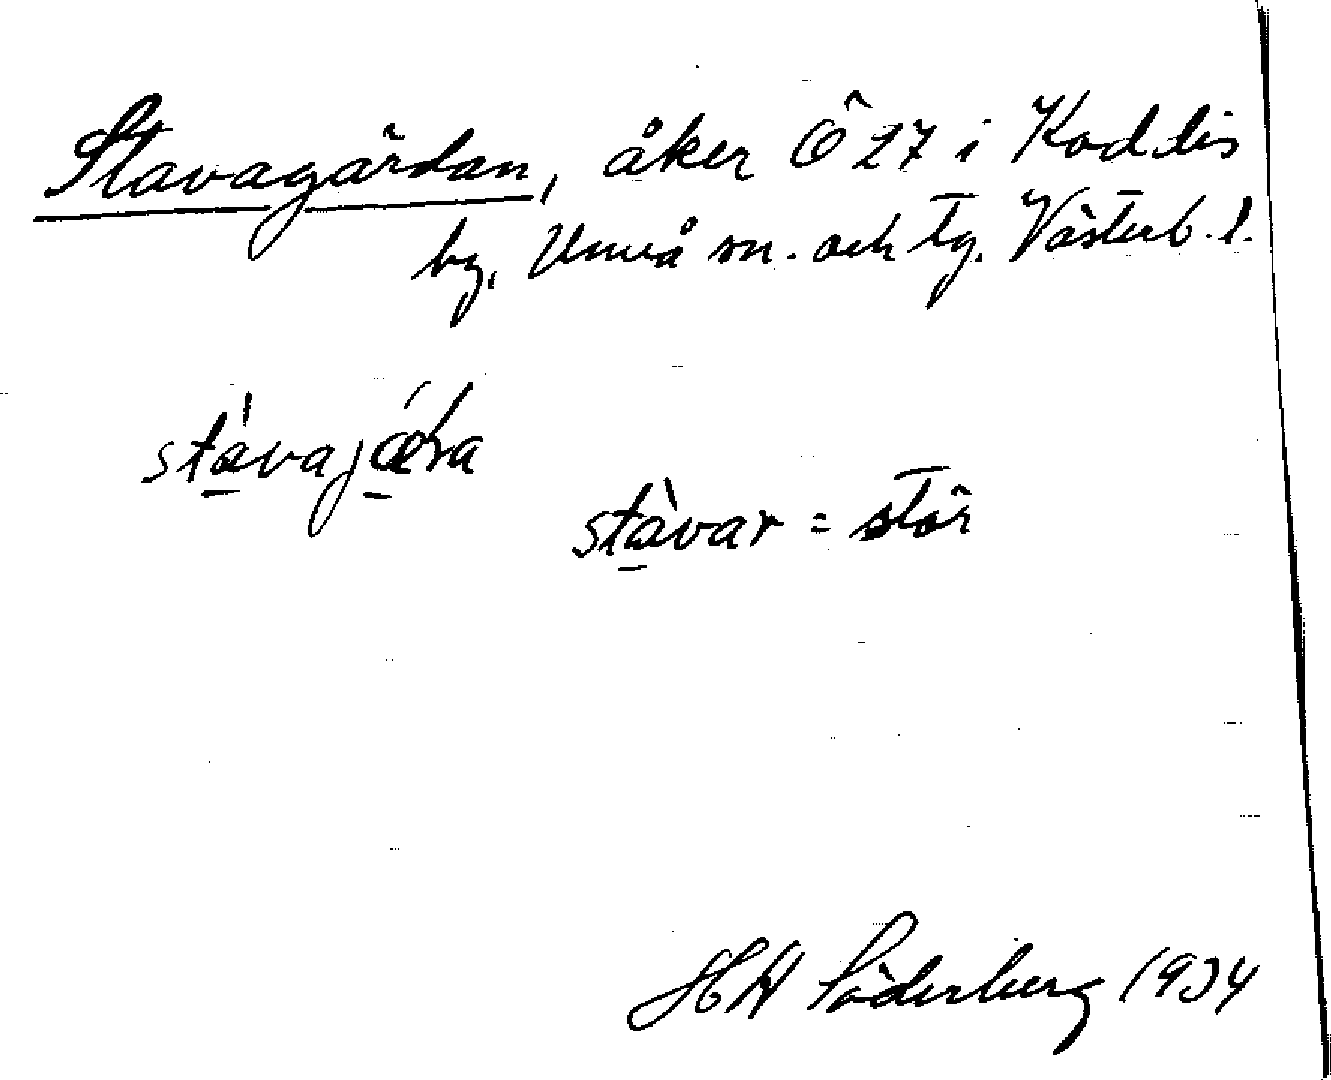 Stavagärdan, åker Ö 27 i Koddis
by, Umeå sn. och tg. Västerb. l.
stàvajæ̀ra
stàvar = stör
H W Söderberg 1934